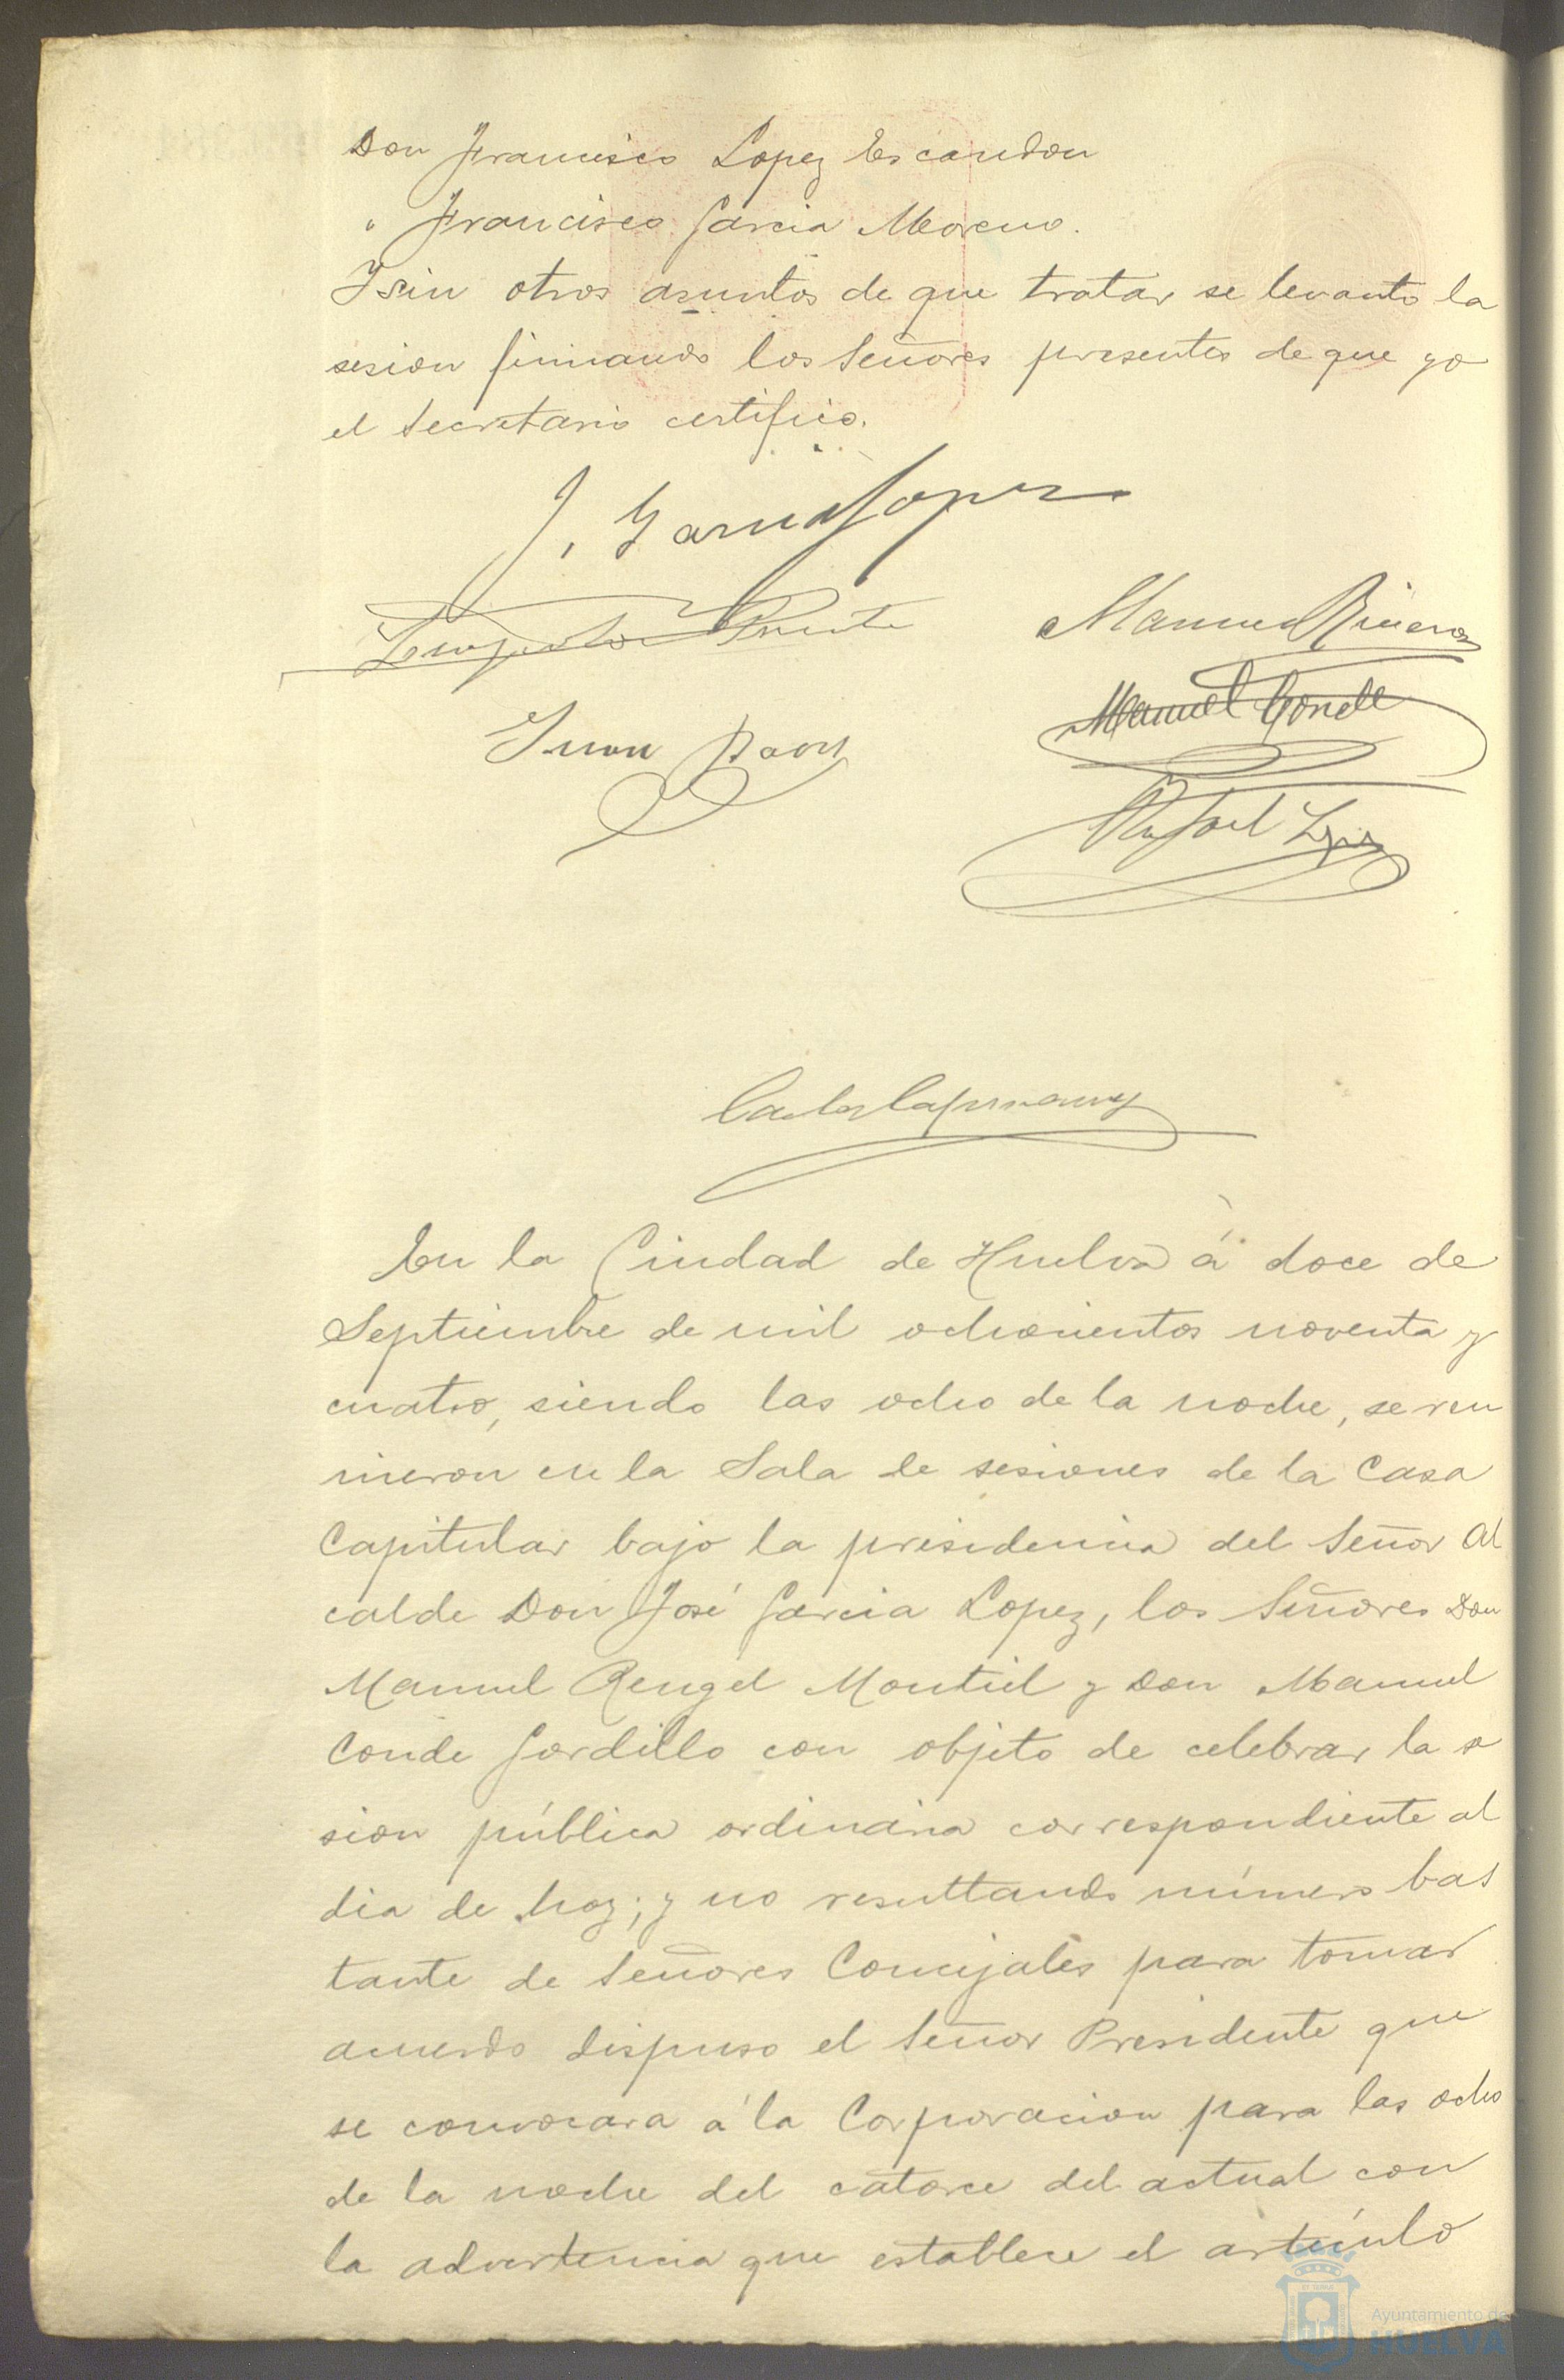 Don Francisco Lopez Escandon
" Francisco Garcia Moreno.
Y sin otros asuntos de que tratar se levantó la
sesion firmando los Señores presentes de que yo
el Secretario certifico.
J. Garcia Lopez
Manuel
Manuel Conde
Juan
Rafael Lopez
En la Ciudad de Huelva á doce de
Septiembre de mil ochocientos noventa y
cuatro, siendo las ocho de la noche, se reu
nieron en la Sala de sesiones de la Casa
Capitular bajo la presidencia del Señor Al
calde Don José Garcia Lopez, los Señores Don
Manuel Rengel Montiel y Don Manuel
Conde Gordillo con objeto de celebrar la se
sion pública ordinaria correspondiente al
dia de hoy; y no resultando número bas
tante de Señores Concejales para tomar
acuerdo dispuso el Señor Presidente que
se convocara á la Corporacion para las ocho
de la noche del catorce del actual con
la advertencia que establece el artículo
Ayuntamiento de
HUELVA